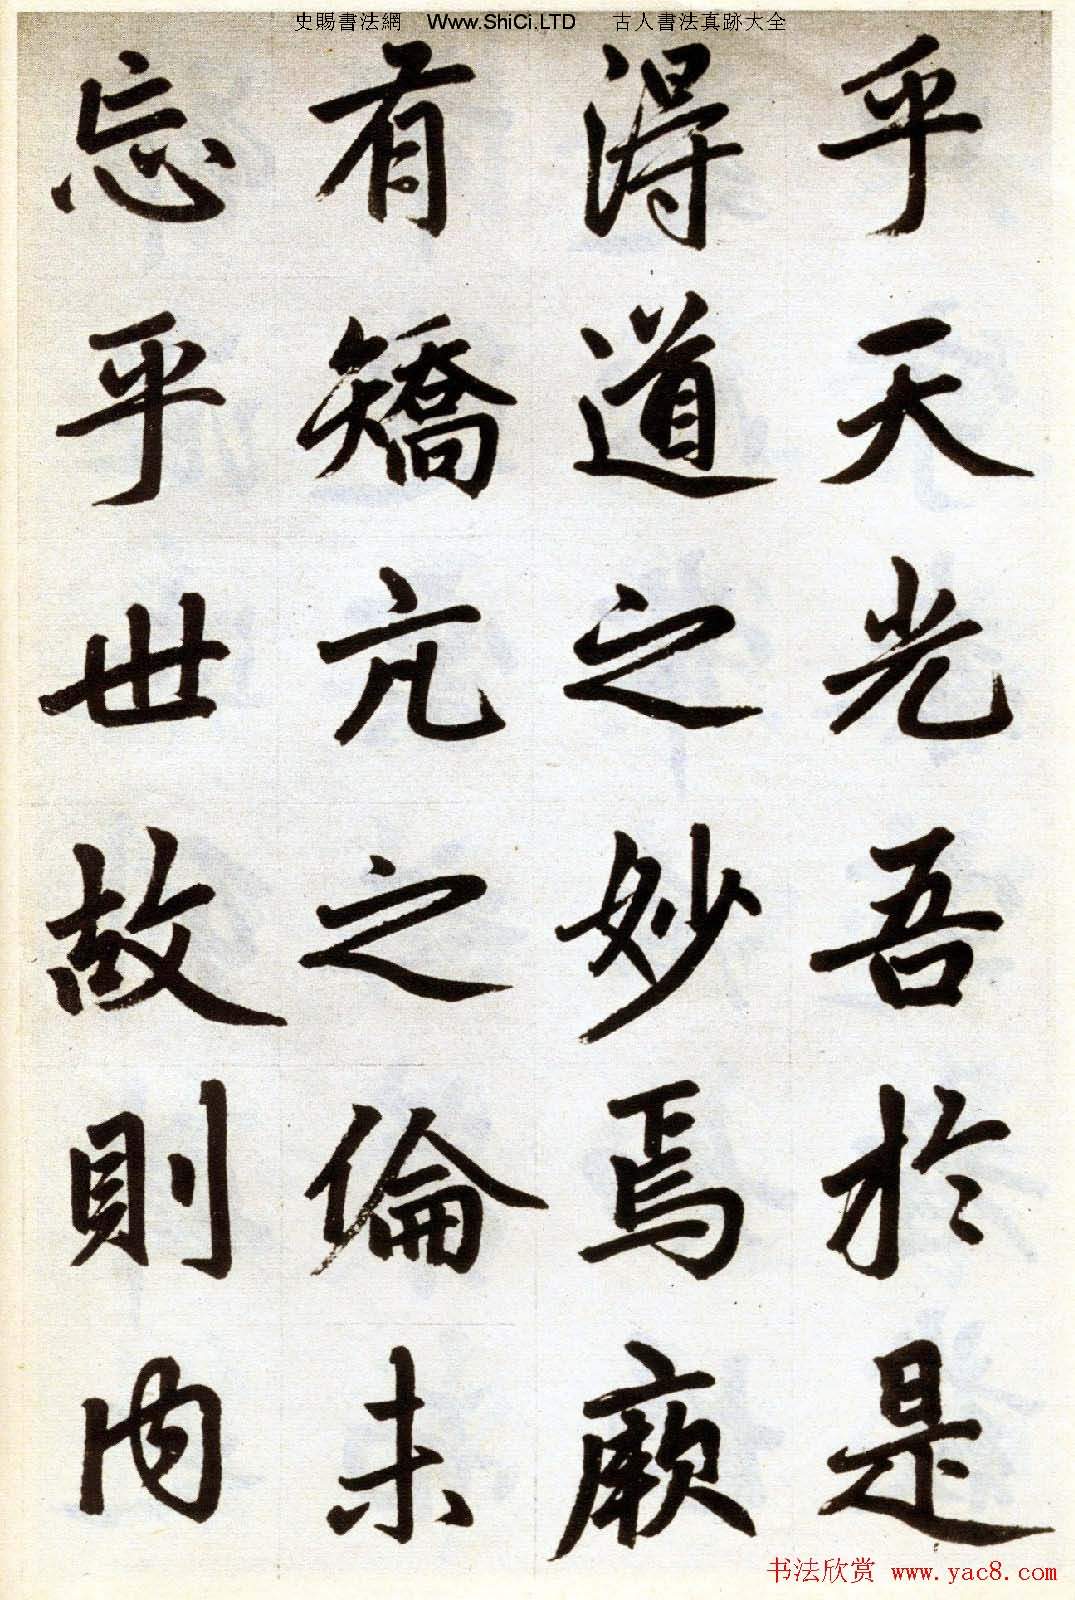 史賜書法網 Www.ShiCi.LTD 古人書法真跡大全
乎天光吾於是
得道之妙焉厥
有矯亢之倫未
忘乎世故則内
书法欣赏 www.yac8.com